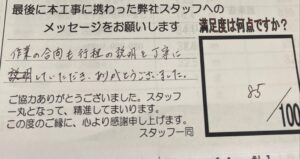 最後に本工事に携わった弊社スタッフへの
メッセージをお願いします
満足度は何点ですか?
作業の合間も行程の説明を丁寧に
説明していただき、ありがとうございました。
85
/100
ご協力ありがとうございました。スタッフ
一丸となって、精進してまいります。
この度のご縁に、心より感謝申し上げます。
スタッフ一同